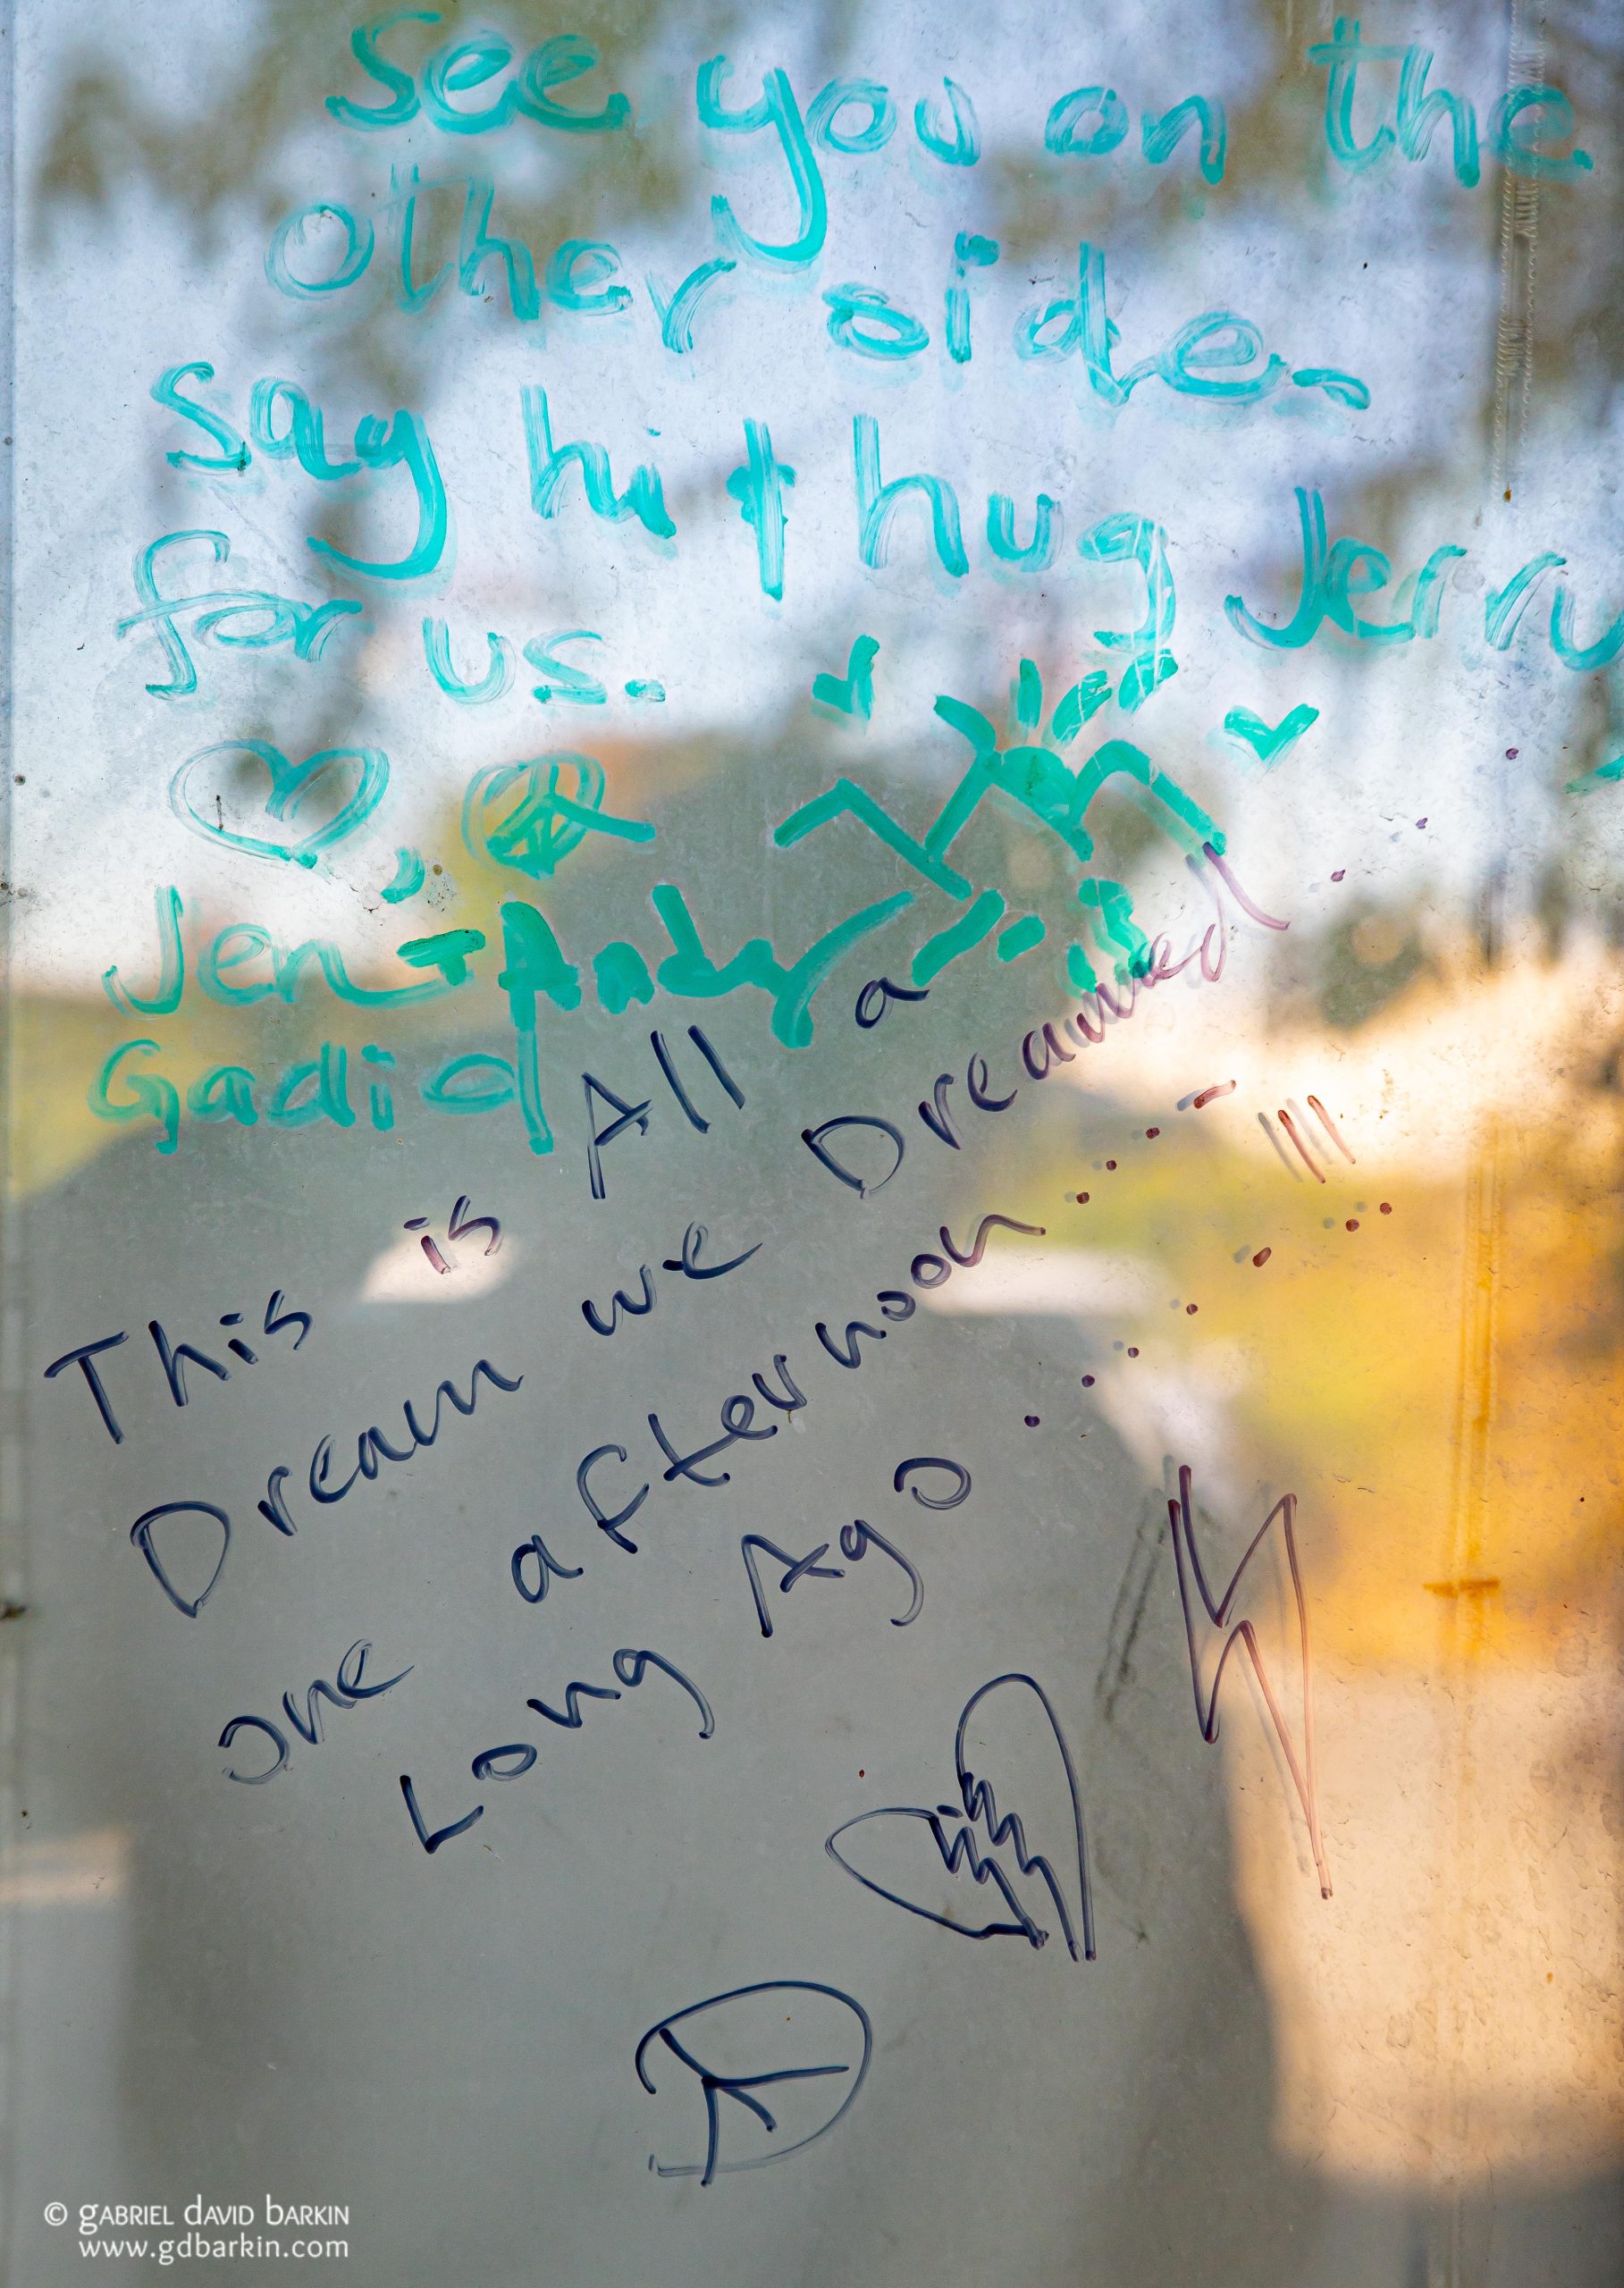 See you on the
other side.
say hi + hug Jerry
for us.
Jen + Andy
Gadiel
This is All a
Dream we Dreamed
one afternoon
Long Ago
© GABRIEL DAVID BARKIN
www.gdbarkin.com